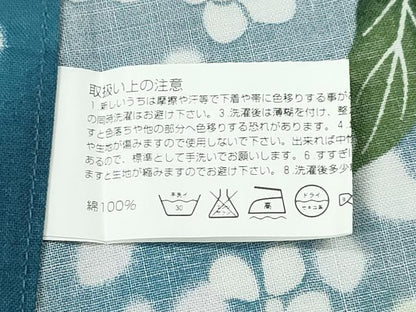 取扱い上の注意
1.新しいうちは摩擦や汗等で下着や帯に色移りする事が
の同時洗濯はお避け下さい。3.洗濯後は薄糊を付け、整
すと色落ちや他の部分へ色移りする恐れがあります。4.
や生地が傷みますので使用しないで下さい。出来れば中
あるので、標準として手洗いでお願いします。6.すすぎ
ますと生地が縮みますのでお避け下さい。8.洗濯後多少
綿100%
手洗イ
30
高
ドライ
セキユ系